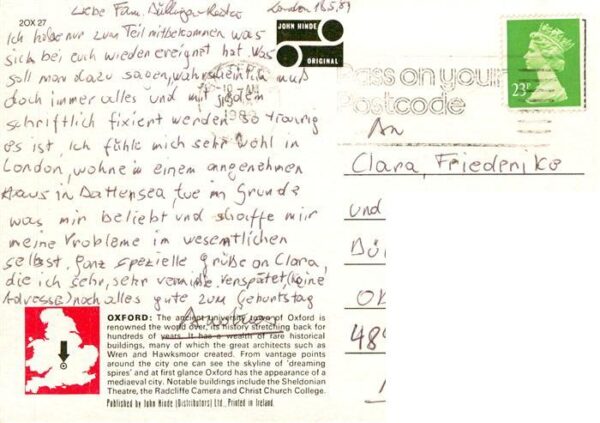 2OX 27
Liebe Fam.
London 18.5.89
Ich habe nur zum Teil mitbekommen was
sich bei euch wieder ereignet hat. Was
soll man dazu sagen, wahrscheinlich muß
doch immer alles und mit jedem
schriftlich fixiert werden so traurig
es ist, ich fühle mich sehr wohl in
London, wohne in einem angenehmen
Haus in Battersea, tue im Grunde
was mir beliebt und schaffe mir
meine Probleme im wesentlichen
selbst, ganz spezielle Grüße an Clara,
die ich sehr, sehr vermiße. Verspätet, (keine
Adresse) noch alles gute zum Geburtstag
JOHN HINDE
ORIGINAL
Pass on your
Postcode
23P
An
Clara, Friederike
und
OXFORD: The ancient university town of Oxford is
renowned the world over, its history stretching back for
hundreds of years. It has a wealth of rare historical
buildings, many of which the great architects such as
Wren and Hawksmoor created. From vantage points
around the city one can see the skyline of 'dreaming
spires' and at first glance Oxford has the appearance of a
mediaeval city. Notable buildings include the Sheldonian
Theatre, the Radcliffe Camera and Christ Church College.
Published by John Hinde (Distributors) Ltd., Printed in Ireland.